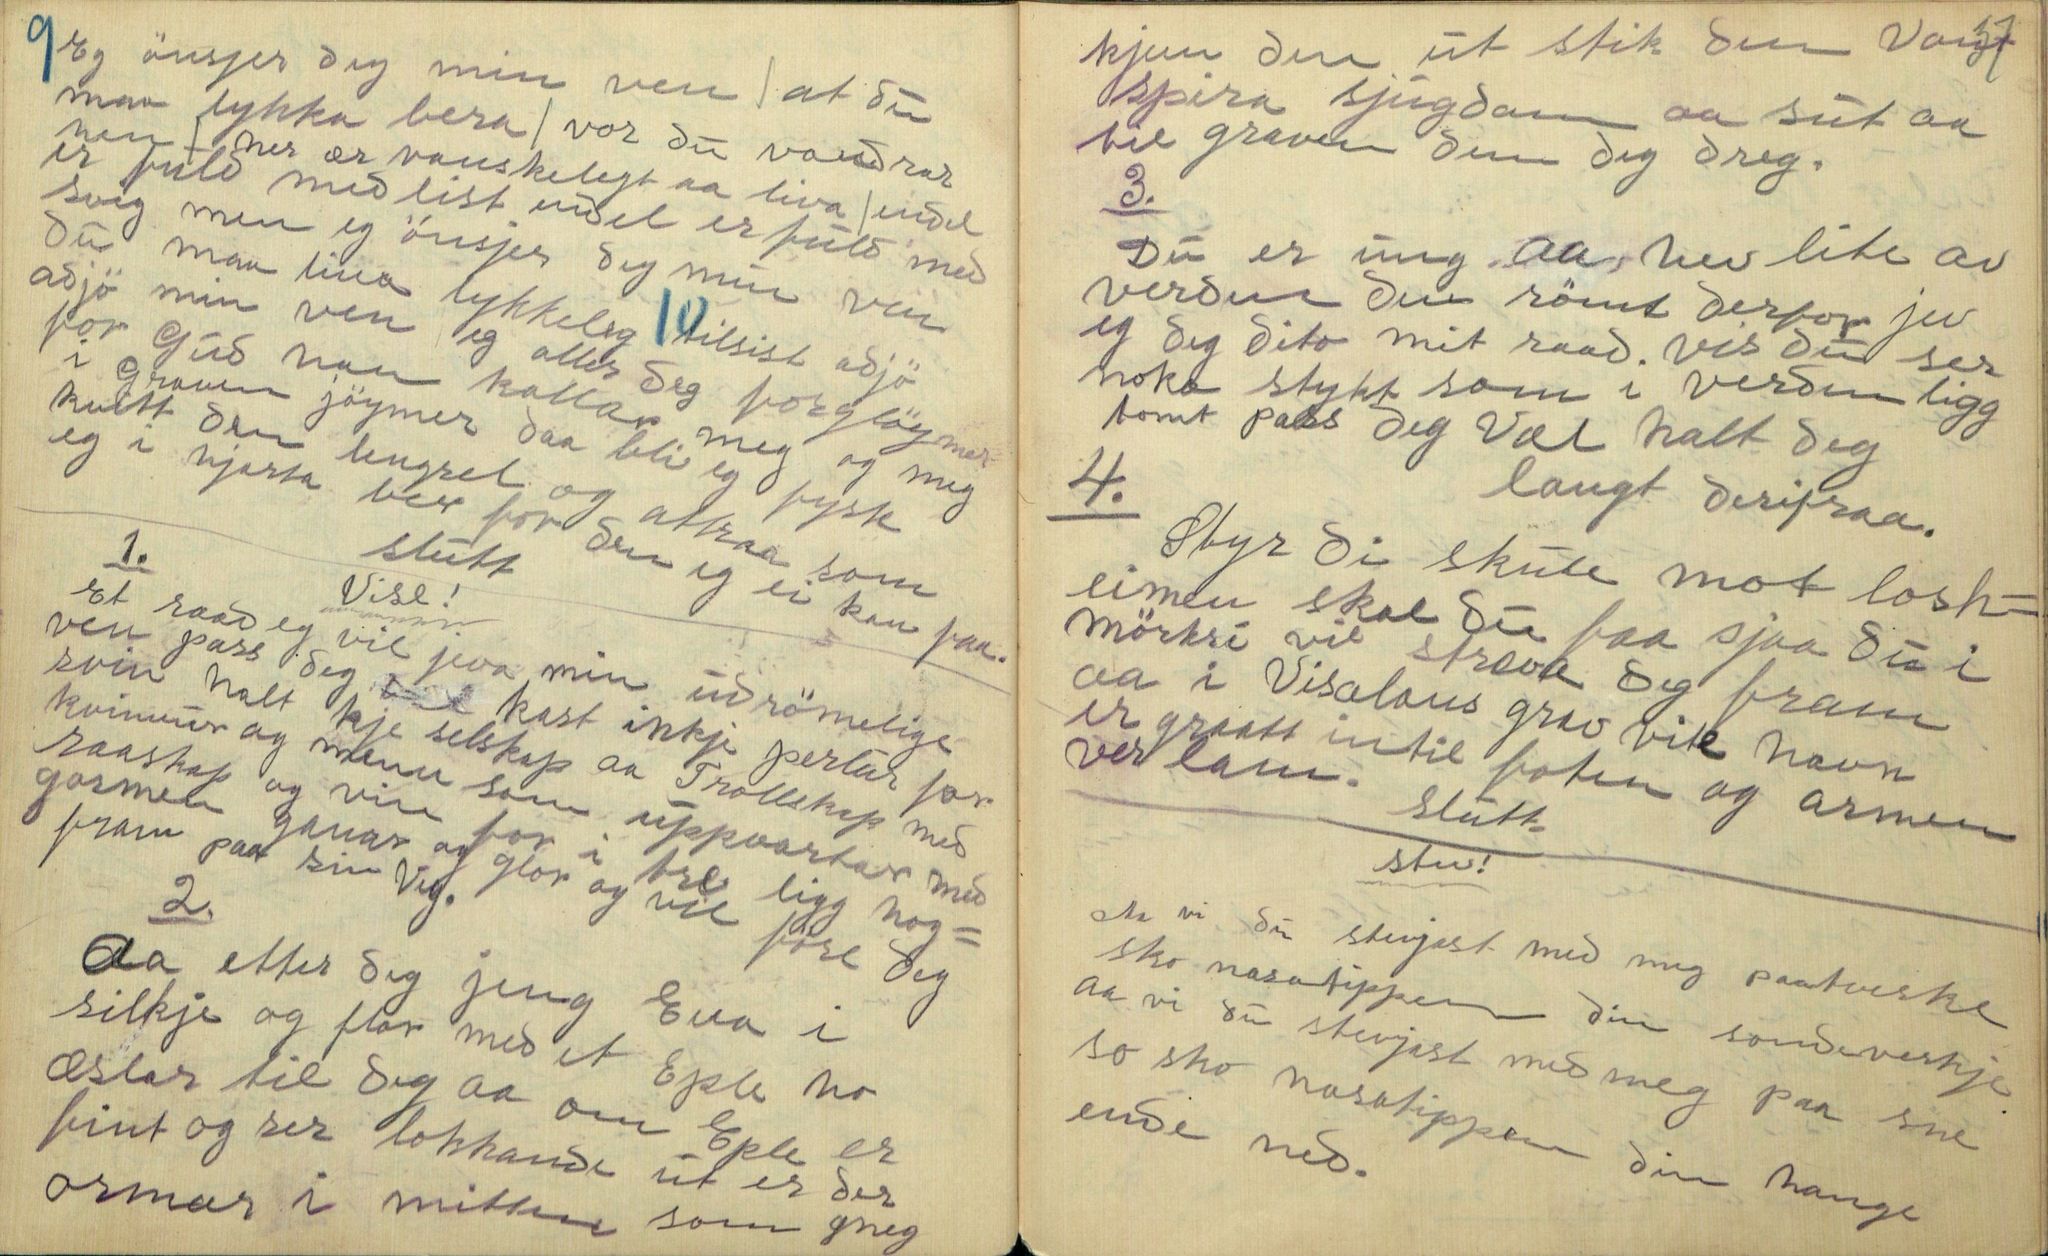 9 Eg önsjer deg min ven / at du
maa lykka bera / vor du vandrar
hen / her ær vanskelegt aa liva / endel
er fuld med list endel er fuld med
svig men eg önsjer deg min ven
du maa liva lykkeleg 10 tilsist adjö
adjö min ven eg aller deg forglöymer
for Gud han kallar meg og meg
i graven jöymer daa bli eg fysk
kvitt den lengsel og attraa som
eg i hjarta ber for den eg ei kan faa.
slutt
Vise!
1.
Et raad eg vil jeva min udrömelige
ven pass deg kast ikkje perlur for
svin halt kje selskap aa Trollskap med
kvinnur og menn som uppvartar med
raaskap og vin for i tre ligg hog=
gormen ganar og glor og vil före deg
fram paa sin Veg.
2.
Aa etter deg jeng Eva i
silkje og flor med et Eple ho
æslar til deg aa om Eple er
fint og ser lokkande ut er der
ormar i mitten som gneg
37
kjem den ut stik den Vangt
spira sjugdam aa sut aa
til graven dem deg dreg.
3.
Du er ung aa hev lite av
verden den römt derfor jev
eg deg dito mit raad. vis du ser
noko stykt som i verden ligg
tomt pass deg Væl halt deg
langt derifraa.
4.
Styr di skute mot losh=
eimen skal du faa sjaa du i
mörkri vil streva deg fram
aa i Viselaus grav vil havn
er graatt intil foten og armen
ver lam.
Slutt
stev!
Aa vi du stevjast med meg paatveske
sko nasatippen din sondeveskje
aa vi du stevjast med meg paa sne
so sko nasatippen din hange
ende ned.